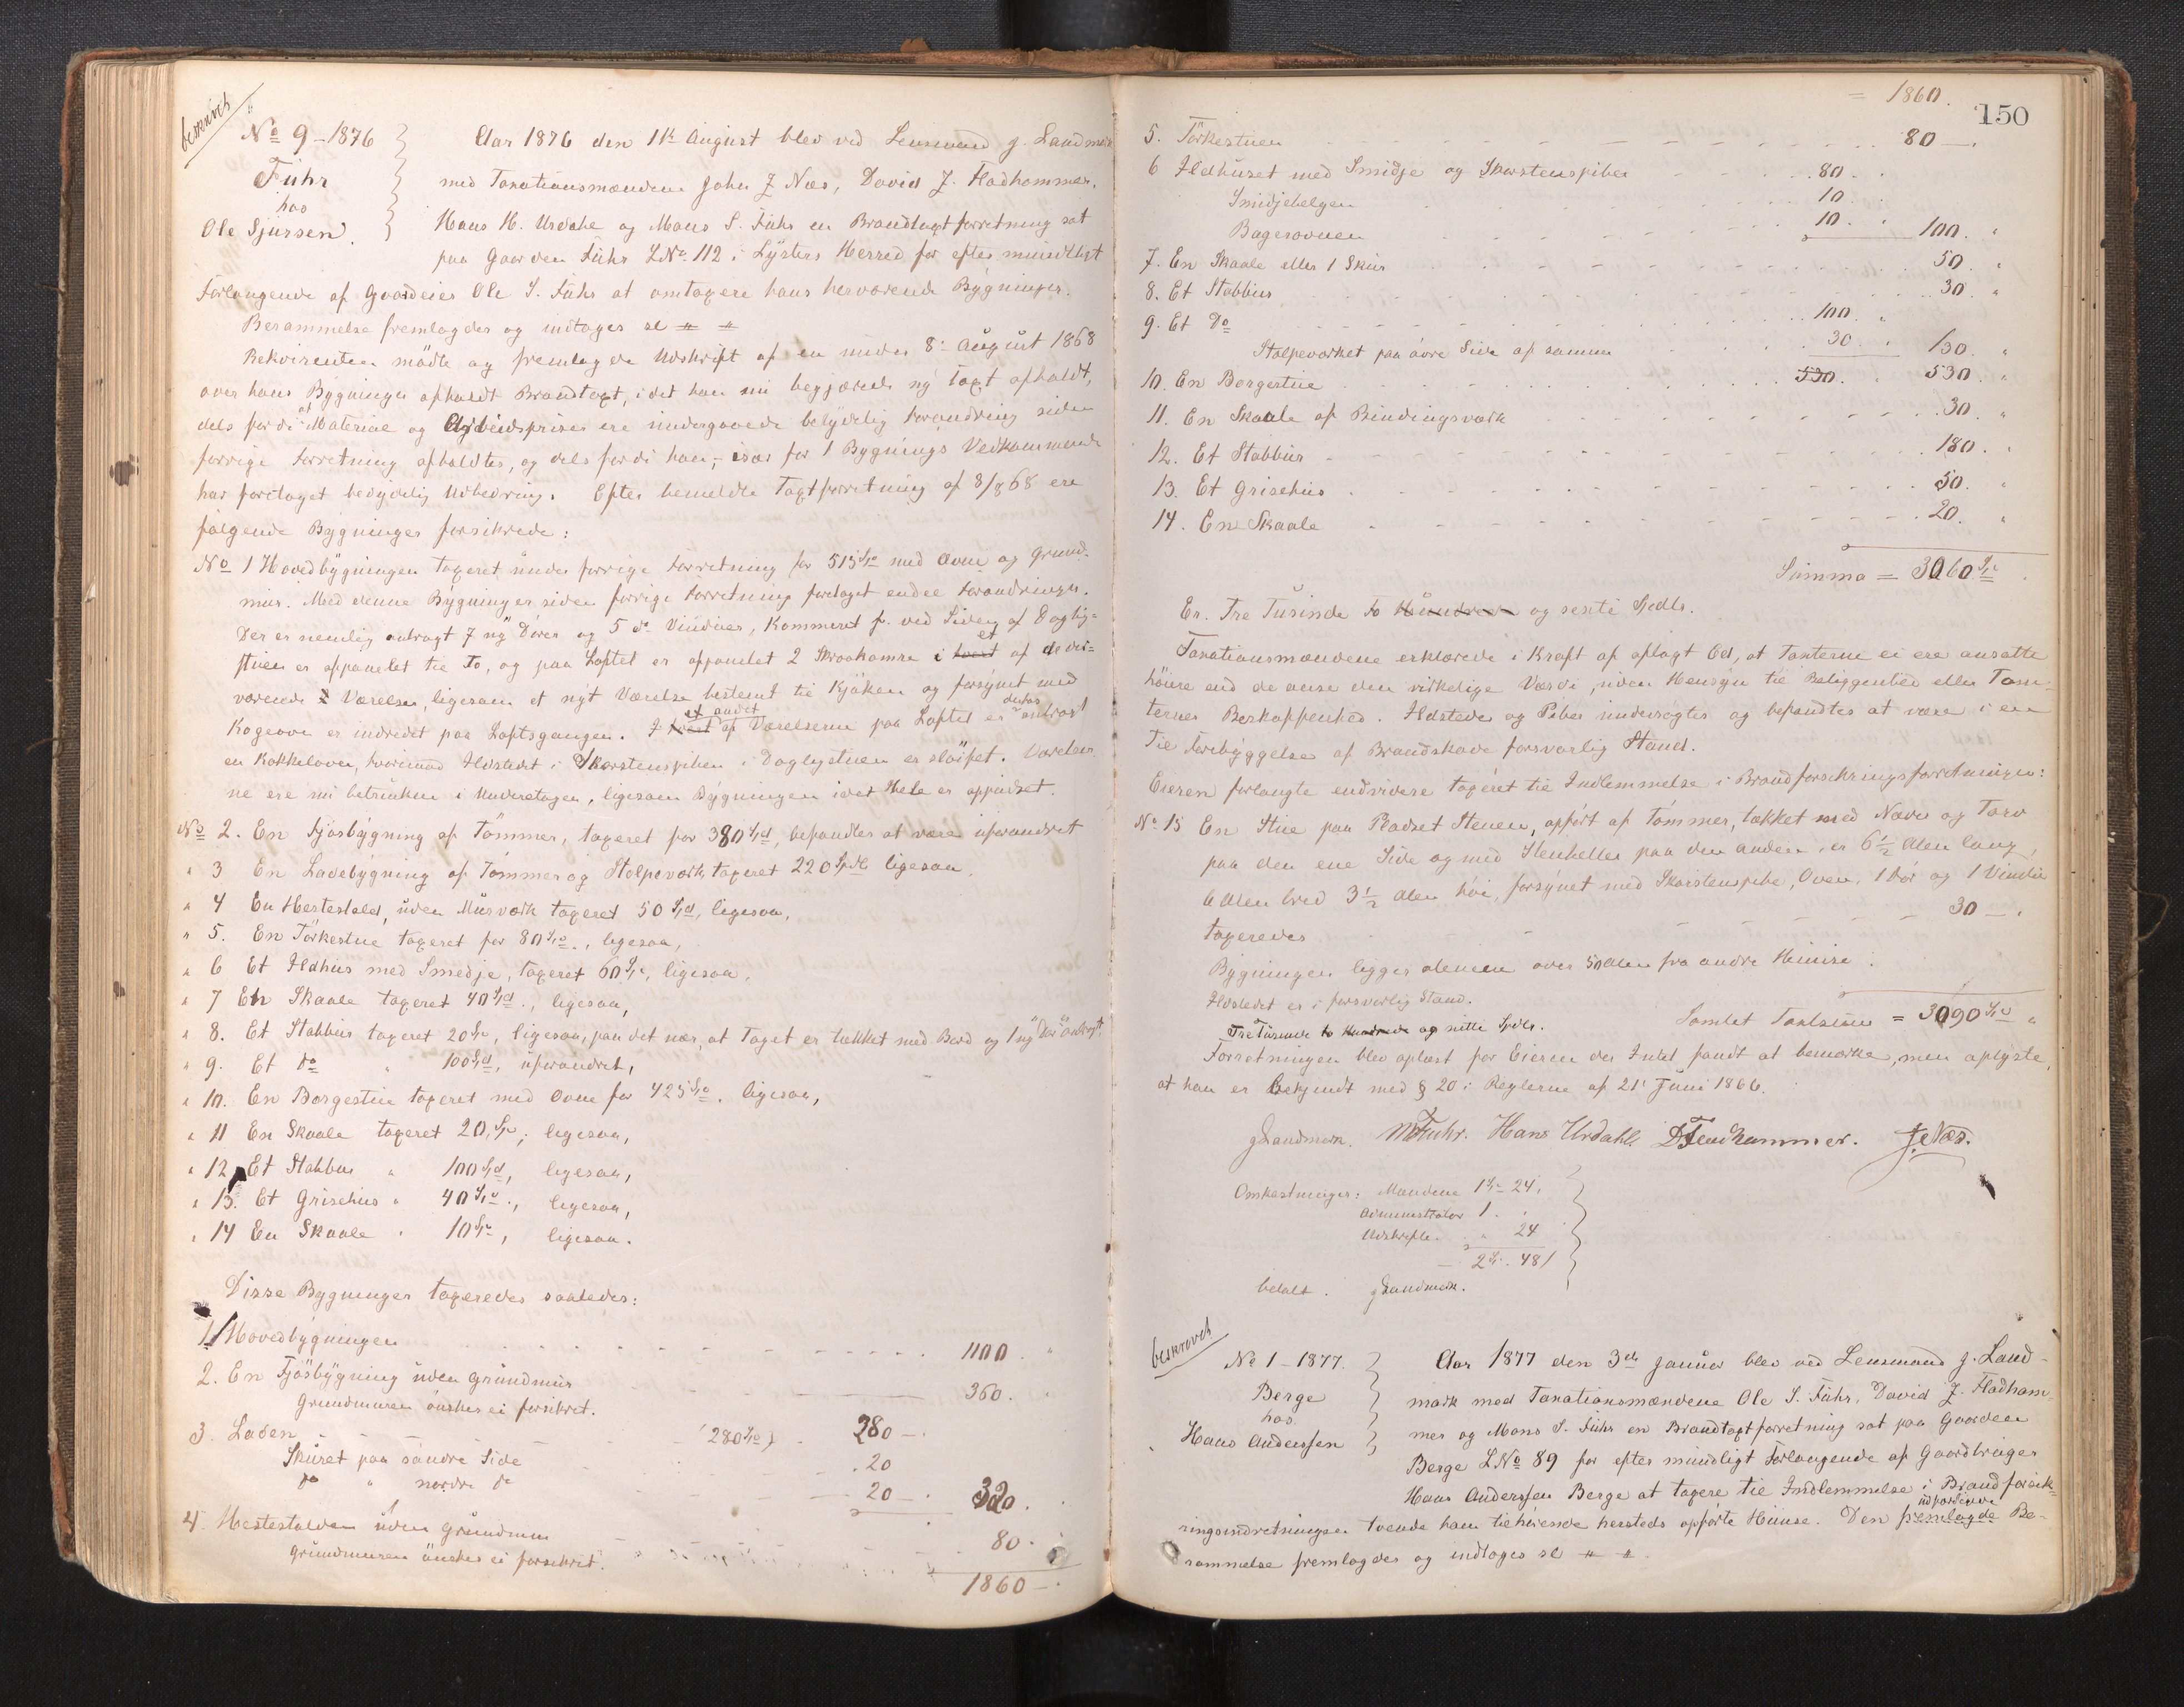 beskrevet
No 9 - 1876
Fuhr
hos
Ole Sjursen.
Aar 1876 den 11te August blev ved Lensmand J. Landmark
med Taxationsmændene John J Næs, David J. Fladhammer,
Hans H. Urdahl og Mons S. Fuhr en Brandtaxtforretning sat
paa Gaarden Fuhr LNo 112 i Lysters Herred for efter mundtligt
Forlangende af Gaardeier Ole S. Fuhr at omtaxere hans herværende Bygninger.
Berammelse fremlagdes og indtages sl # #
Rekvirenten mødte og fremlagde Udskrift af en under 8de August 1868
over hans Bygninger afholdt Brandtaxt, idet han nu begjærede ny Taxt afholdt,
dels fordi Materiale og Arbeidspriser ere undergaaede betydelig Forandring siden
forrige Forretning afholdtes, og dels fordi han, især for 1 Bygnings Vedkommende
har foretaget betydelig Udbedring. Efter bemeldte Taxtforretning af 8/8 68 ere
følgende Bygninger forsikrede:
No 1 Hovedbygningen taxeret under forrige Forretning for 515 Spd med Ovne og Grund-
mur. Med denne Bygning er siden forrige Forretning foretaget endel Forandringer.
Der er nemlig anbragt 7 ny Døre og 5 do Vinduer, Kammeret p. ved Siden af Daglig-
stuen er afpanelet til To, og paa Loftet er afpanelet 2 Skraakamre i et af de der-
værende Værelser, ligesom et nyt Værelse bestemt til Kjøken og forsynet med
Kogeovn er indredet paa Loftsgangen. I et andet af Værelserne paa Loftet er derhos anbragt
en Kakkelovn, hvorimod Ildstedet i Skorstenspiben i Daglystuen er sløifet. Værelser-
ne ere nu betrukne i Underetagen, ligesom Bygningen idet Hele er oppudset.
No 2. En Fjøsbygning af Tømmer, taxeret for 380 Spd, befandtes at være uforandret
" 3 En Ladebygning af Tømmer og Stolpeværk, taxeret 220 Spd ligesaa.
" 4 En Hestestald, uden Murværk taxeret 50 Spd, ligesaa,
" 5. En Tørkestue taxeret for 80 Spd., ligesaa,
" 6 Et Ildhus med Smedje, taxeret 60 Spd, ligesaa,
" 7 En Skaale taxeret 40 Spd., ligesaa,
" 8. Et Stabbur taxeret 20 Spd, ligesaa, paa det nær, at Taget er tækket med Bord og 1 ny Dør anbragt.
" 9. Et do " 100 Spd, uforandret,
" 10. En Borgestue taxeret med Ovne for 425 Spd. ligesaa,
" 11 En Skaale taxeret 20 Spd, ligesaa,
" 12. Et Stabbur " 100 Spd, ligesaa,
" 13. Et Grisehus " 40 Spd., ligesaa,
" 14 En Skaale " 10 Spd, ligesaa.
Disse Bygninger taxeredes saaledes:
1 Hovedbygningen 1100
2. En Fjøsbygning uden Grundmur 360.
Grundmuren ønskes ei forsikret.
3. Laden (280 Spd) 280 -
Skuret paa søndre Side 20
do " nordre do 20 - 320.
4. Hestestalden uden Grundmur 80.
Grundmuren ønskes ei forsikret.
1860 -
150
= 1860.
5. Tørkestuen 80 -
6 Ildhuset med Smidje og Skorstenspibe 80.
Smidjebelgen 10.
Bagerovnen 10. 100. "
7. En Skaale eller 1 Skur 50. "
8. Et Stabbur 30. "
9. Et Do 100.
Stolpeværket paa øvre Side af samme 30. 130. "
10. En Borgestue 530. 530. "
11. En Skaale af Bindingsværk 30. "
12. Et Stabbur 180. "
13. Et Grisehus 50. "
14. En Skaale 20. "
Summa = 3060 Spd
Er. Tre Tusinde to Hundrede og sexti Spdlr.
Taxationsmændene erklærede i Kraft af aflagt Ed, at Taxterne ei ere ansatte
høiere end de anse den virkelige Værdi, uden Hensyn til Beliggenhed eller Tom-
ternes Beskaffenhed. Ildsteder og Piber undersøgtes og befandtes at være i en
til Forebyggelse af Brandskade forsvarlig Stand.
Eieren forlangte endvidere taxeret til Indlemmelse i Brandforsikringsforretningen:
No 15 En Stue paa Pladset Stenen, opført af Tømmer, tækket med Næver og Torv
paa den ene Side og med Stenheller paa den anden, er 6 1/2 Alen lang,
6 Alen bred 3 1/2 Alen høi, forsynet med Skorstenspibe, Ovn, 1 Dør og 1 Vindu
taxeredes 30 -
Bygningen ligger alene over 50 Alen fra andre Huuse.
Ildstedet er i forsvarlig Stand.
Samlet Taxtsum = 3090 Spd "
Tre Tusinde to Hundrede og nitti Spdlr.
Forretningen blev oplæst for Eieren der Intet fandt at bemærke, men oplyste,
at han er bekjendt med § 20 i Reglerne af 21 Juni 1866.
JLandmark. MSFuhr. Hans Urdahl DFladhammer. JJNæs.
Omkostninger: Mændene 1 Spd 24.
Administrator 1.
Udskrifter " 24
2 Spd. 48
betalt. JLandmark.
beskrevet
No 1 - 1877.
Berge
hos
Hans Anderssen
Aar 1877 den 3de Januar blev ved Lensmand J. Land-
mark med Taxationsmændene Ole S. Fuhr, David J. Fladham-
mer og Mons S. Fuhr en Brandtaxtforretning sat paa Gaarden
Berge LNo 89 for efter mundligt Forlangende af Gaardbruger
Hans Anderssen Berge at taxere til Indlemmelse i Brandforsik-
ringsindretningen tvende ham tilhørende hersteds opførte Huuse. Den udfærdigede fremlagde Be-
rammelse fremlagdes og indtages sl # #